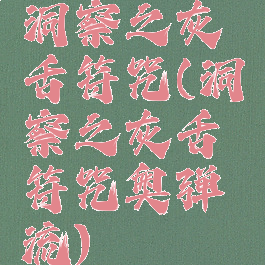 洞察之灰
舌符咒(洞
察之灰舌
符咒奥弹
流)